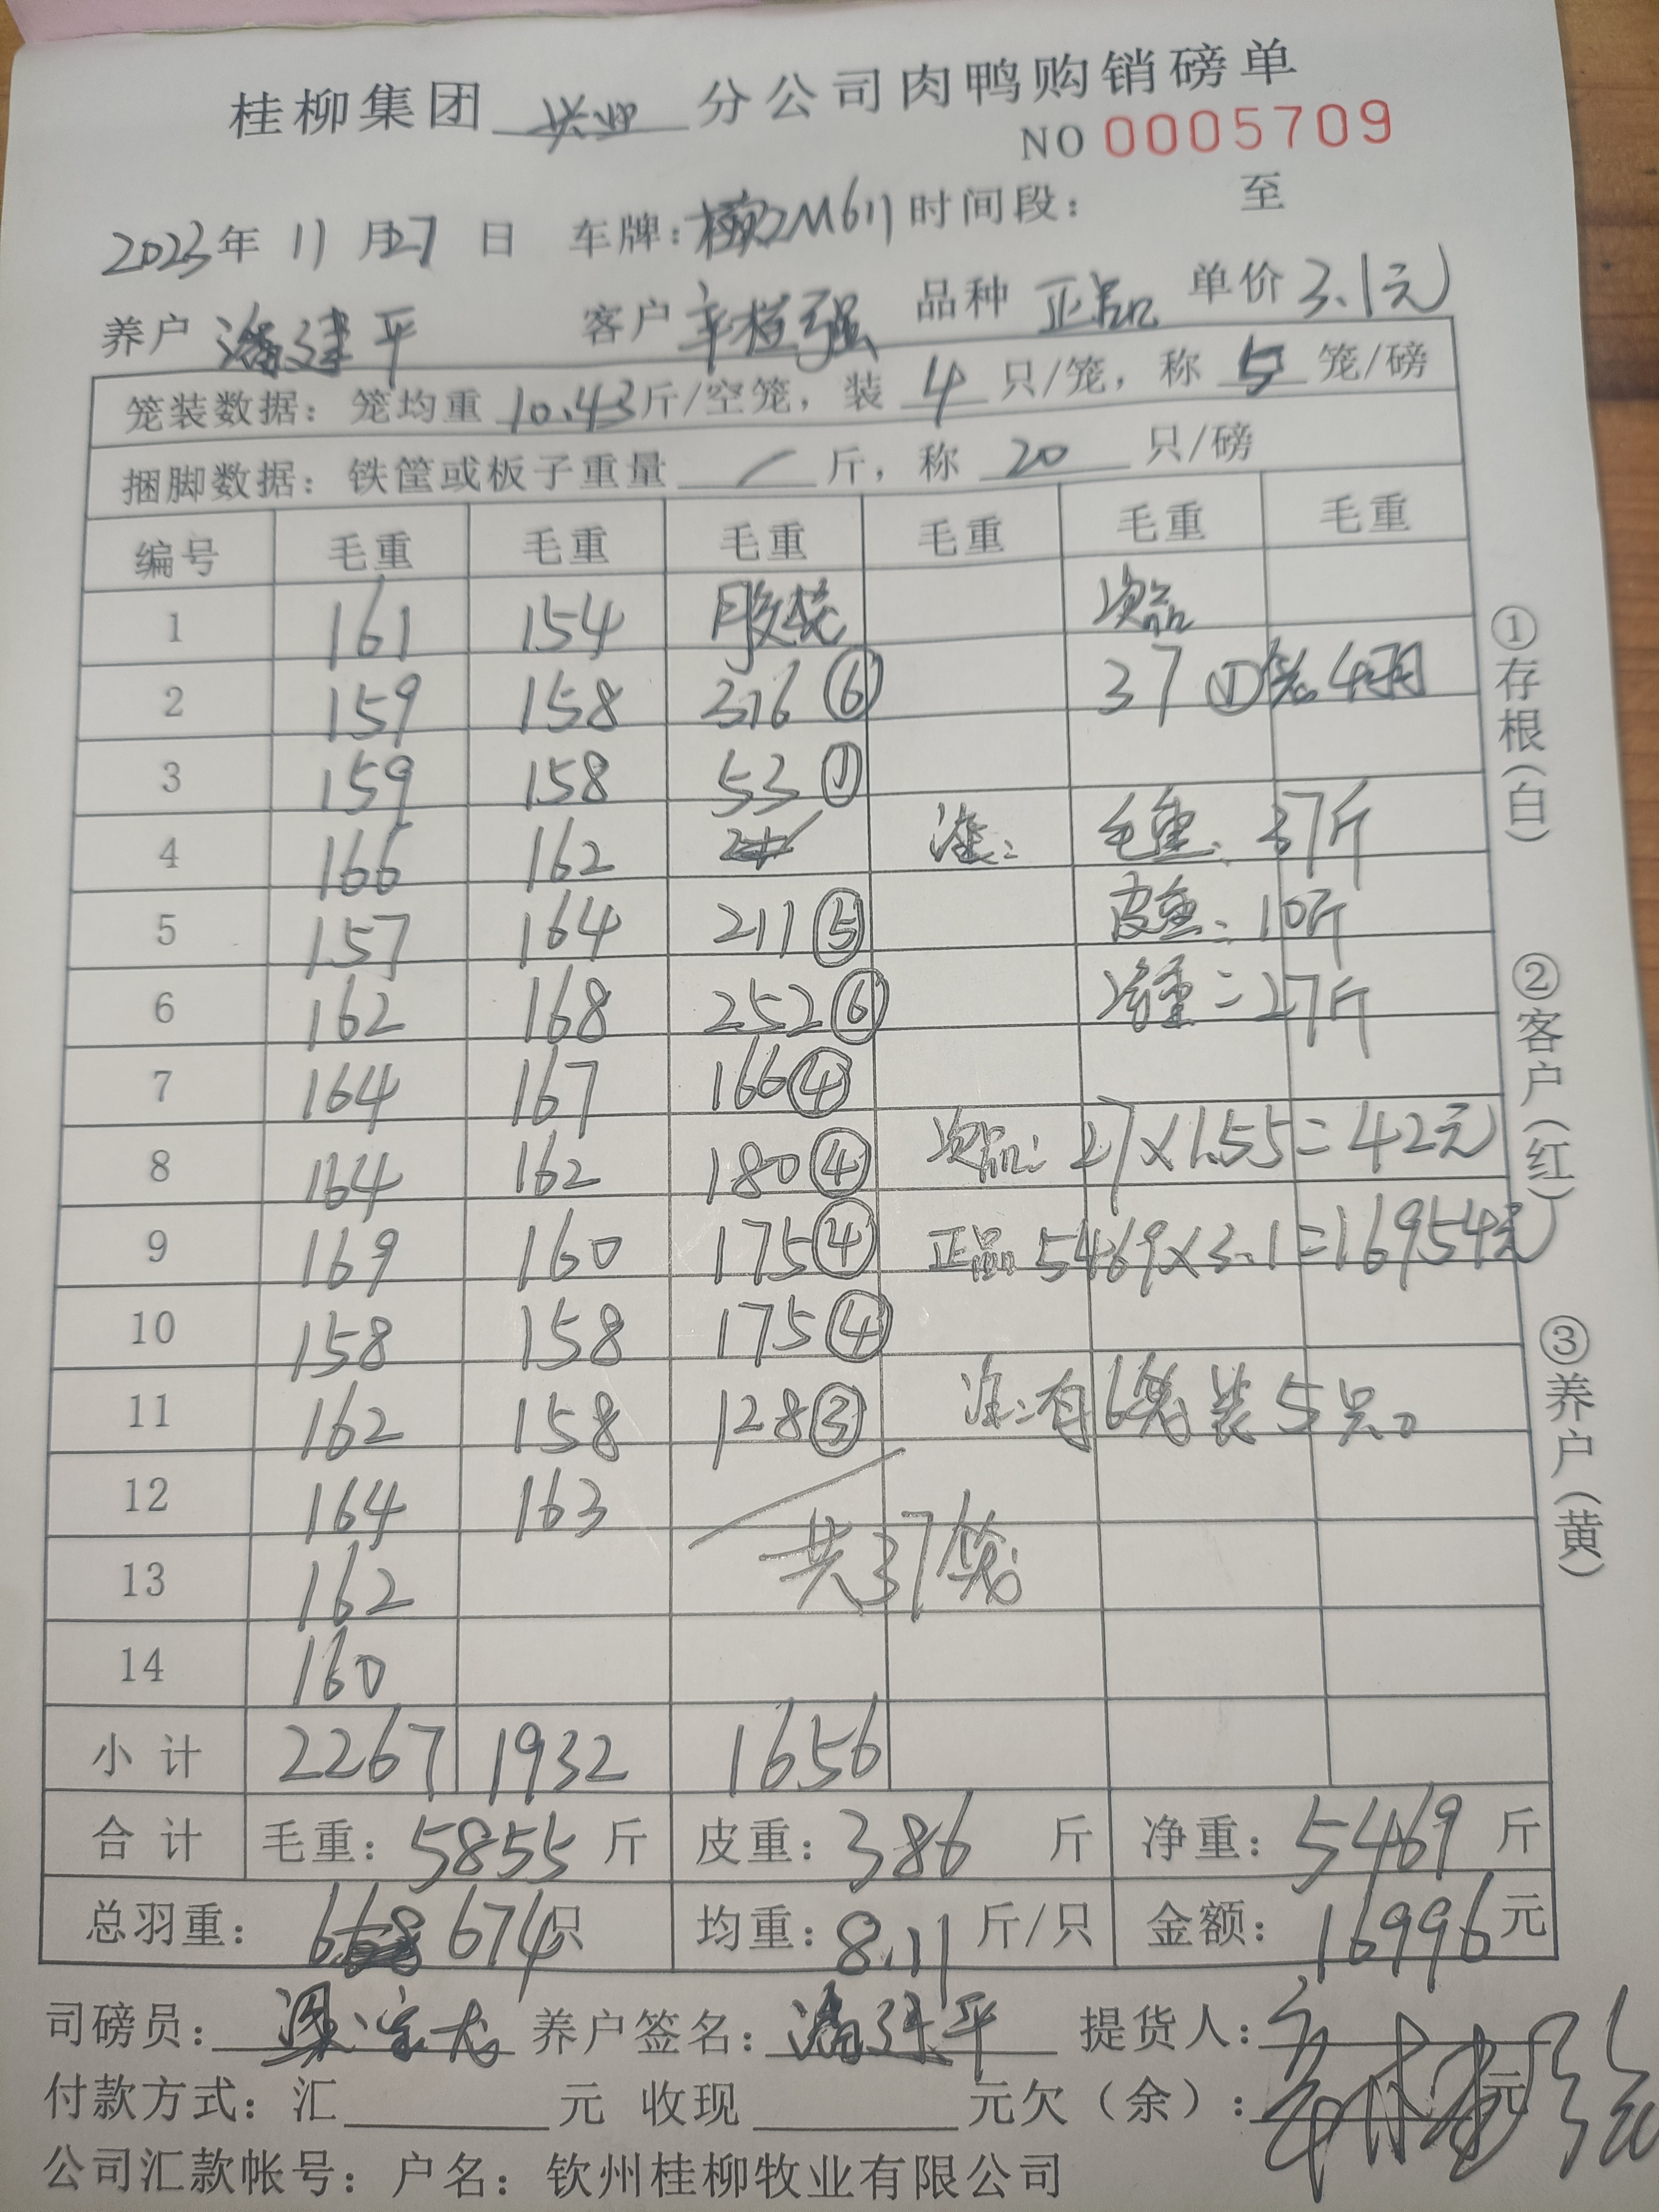 桂柳集团 兴业 分公司肉鸭购销磅单
NO 0005709
2023年 11 月27 日 车牌: 时间段: 至
养户 潘建平 客户 辛桂强 品种 正品 单价 3.1元
笼装数据: 笼均重 10.43斤/空笼, 装 4 只/笼, 称 5 笼/磅
捆脚数据: 铁筐或板子重量 / 斤, 称 20 只/磅
编号 毛重 毛重 毛重 毛重 毛重 毛重
1 161 154 胶笼 次品
2 159 158 316 ⑥ 37 ①笼4只
3 159 158 53 ①
4 166 162 注: 毛重: 37斤
5 157 164 211 ⑤ 皮重: 10斤
6 162 168 252 ⑥ 净重=27斤
7 164 167 166 ④
8 164 162 180 ④ 次品: 27×1.55=42元
9 169 160 175 ④ 正品: 5469×3.1=16954元
10 158 158 175 ④
11 162 158 128 ③ 注:有6笼装5只。
12 164 163
13 162 共37笼
14 160
小计 2267 1932 1656
合计 毛重: 5855 斤 皮重: 386 斤 净重: 5469 斤
总羽重: 674只 均重: 8.11 斤/只 金额: 16996元
司磅员: 养户签名: 潘建平 提货人: 辛桂强
付款方式: 汇 元 收现 元欠(余): 元
公司汇款帐号: 户名: 钦州桂柳牧业有限公司
①存根(白) ②客户(红) ③养户(黄)